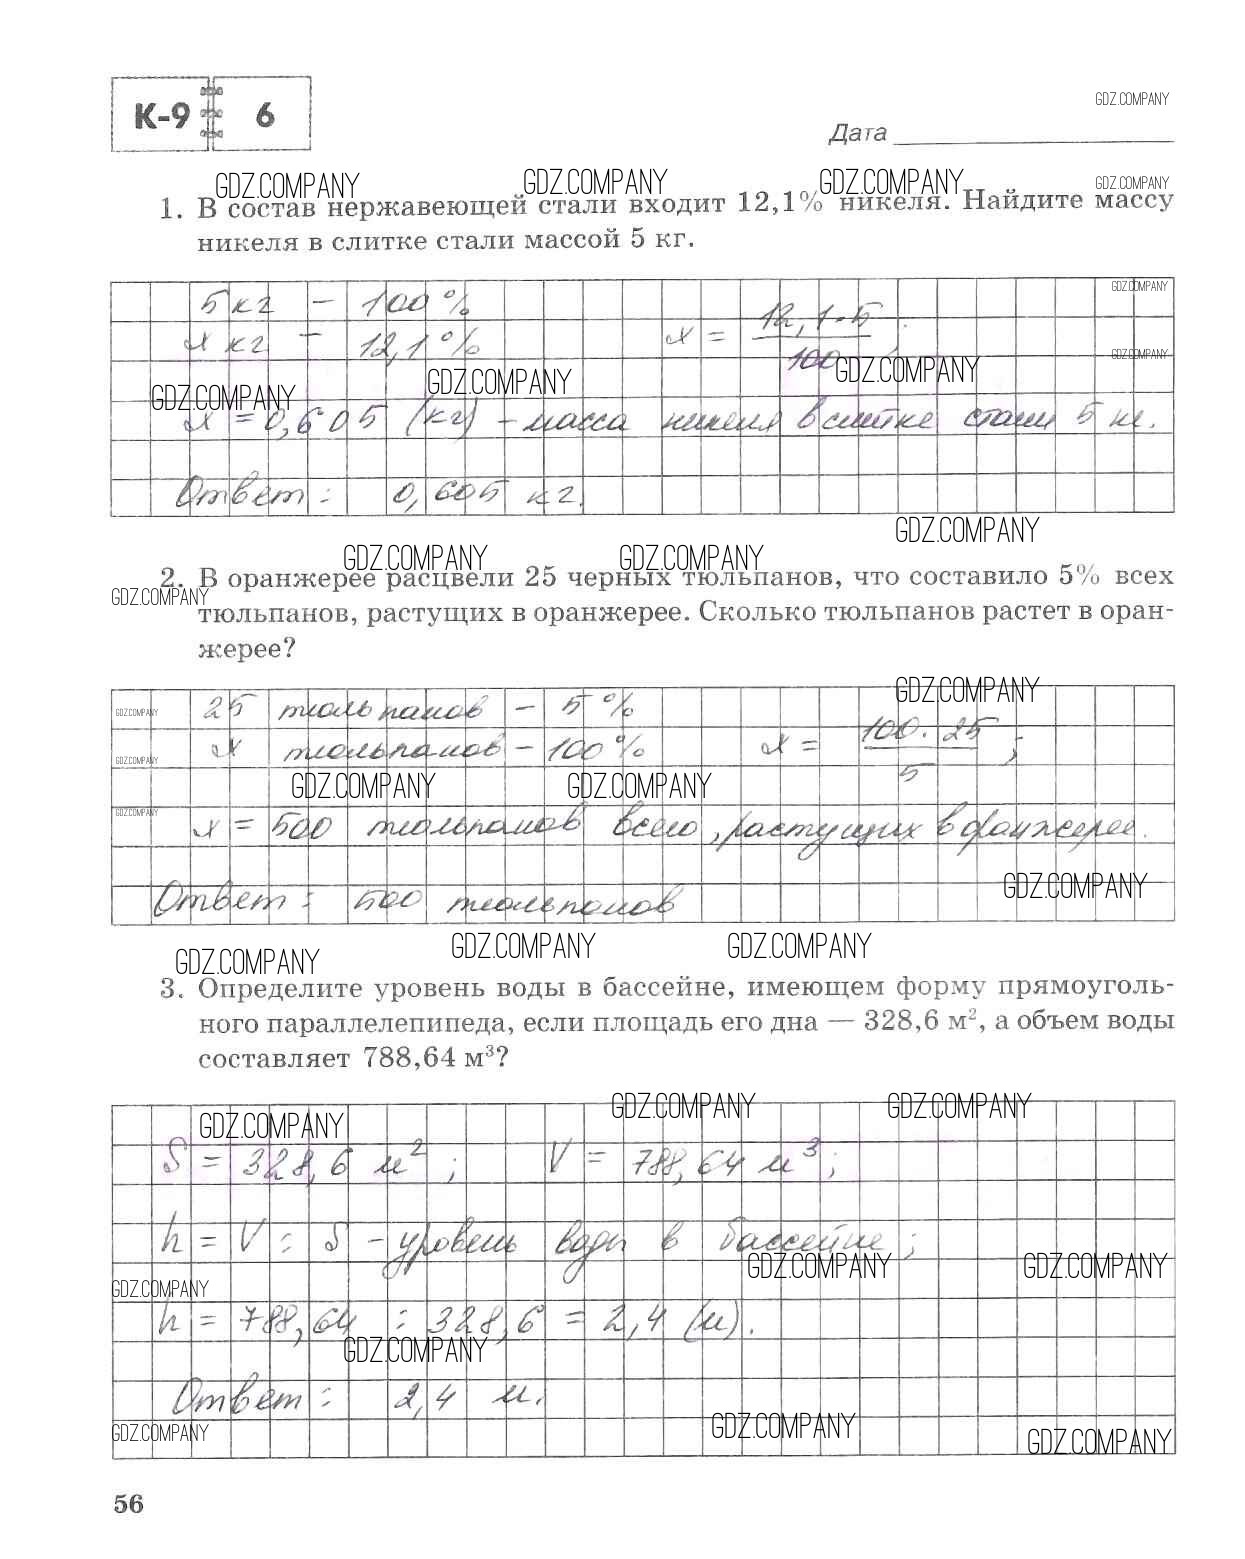 К-9 6
GDZ.COMPANY
Дата
GDZ.COMPANY GDZ.COMPANY GDZ.COMPANY GDZ.COMPANY
1. В состав нержавеющей стали входит 12,1% никеля. Найдите массу
никеля в слитке стали массой 5 кг.
GDZ.COMPANY
5 кг – 100 %
x кг – 12,1 % x = 12,1 · 5 / 100 ;
GDZ.COMPANY
GDZ.COMPANY GDZ.COMPANY GDZ.COMPANY
x = 0,605 (кг) – масса никеля в слитке стали 5 кг.
Ответ: 0,605 кг.
GDZ.COMPANY
GDZ.COMPANY GDZ.COMPANY
2. В оранжерее расцвели 25 черных тюльпанов, что составило 5% всех
GDZ.COMPANY
тюльпанов, растущих в оранжерее. Сколько тюльпанов растет в оран-
жерее?
GDZ.COMPANY
GDZ.COMPANY
25 тюльпанов – 5 %
x тюльпанов – 100 % x = 100 · 25 / 5 ;
GDZ.COMPANY
GDZ.COMPANY GDZ.COMPANY
GDZ.COMPANY
x = 500 тюльпанов всего, растущих в оранжерее.
GDZ.COMPANY
Ответ: 500 тюльпанов
GDZ.COMPANY GDZ.COMPANY GDZ.COMPANY
3. Определите уровень воды в бассейне, имеющем форму прямоуголь-
ного параллелепипеда, если площадь его дна — 328,6 м², а объем воды
составляет 788,64 м³?
GDZ.COMPANY GDZ.COMPANY
GDZ.COMPANY
S = 328,6 м² ; V = 788,64 м³ ;
h = V : S – уровень воды в бассейне ;
GDZ.COMPANY GDZ.COMPANY
GDZ.COMPANY
h = 788,64 : 328,6 = 2,4 (м).
GDZ.COMPANY
Ответ: 2,4 м.
GDZ.COMPANY GDZ.COMPANY GDZ.COMPANY
56